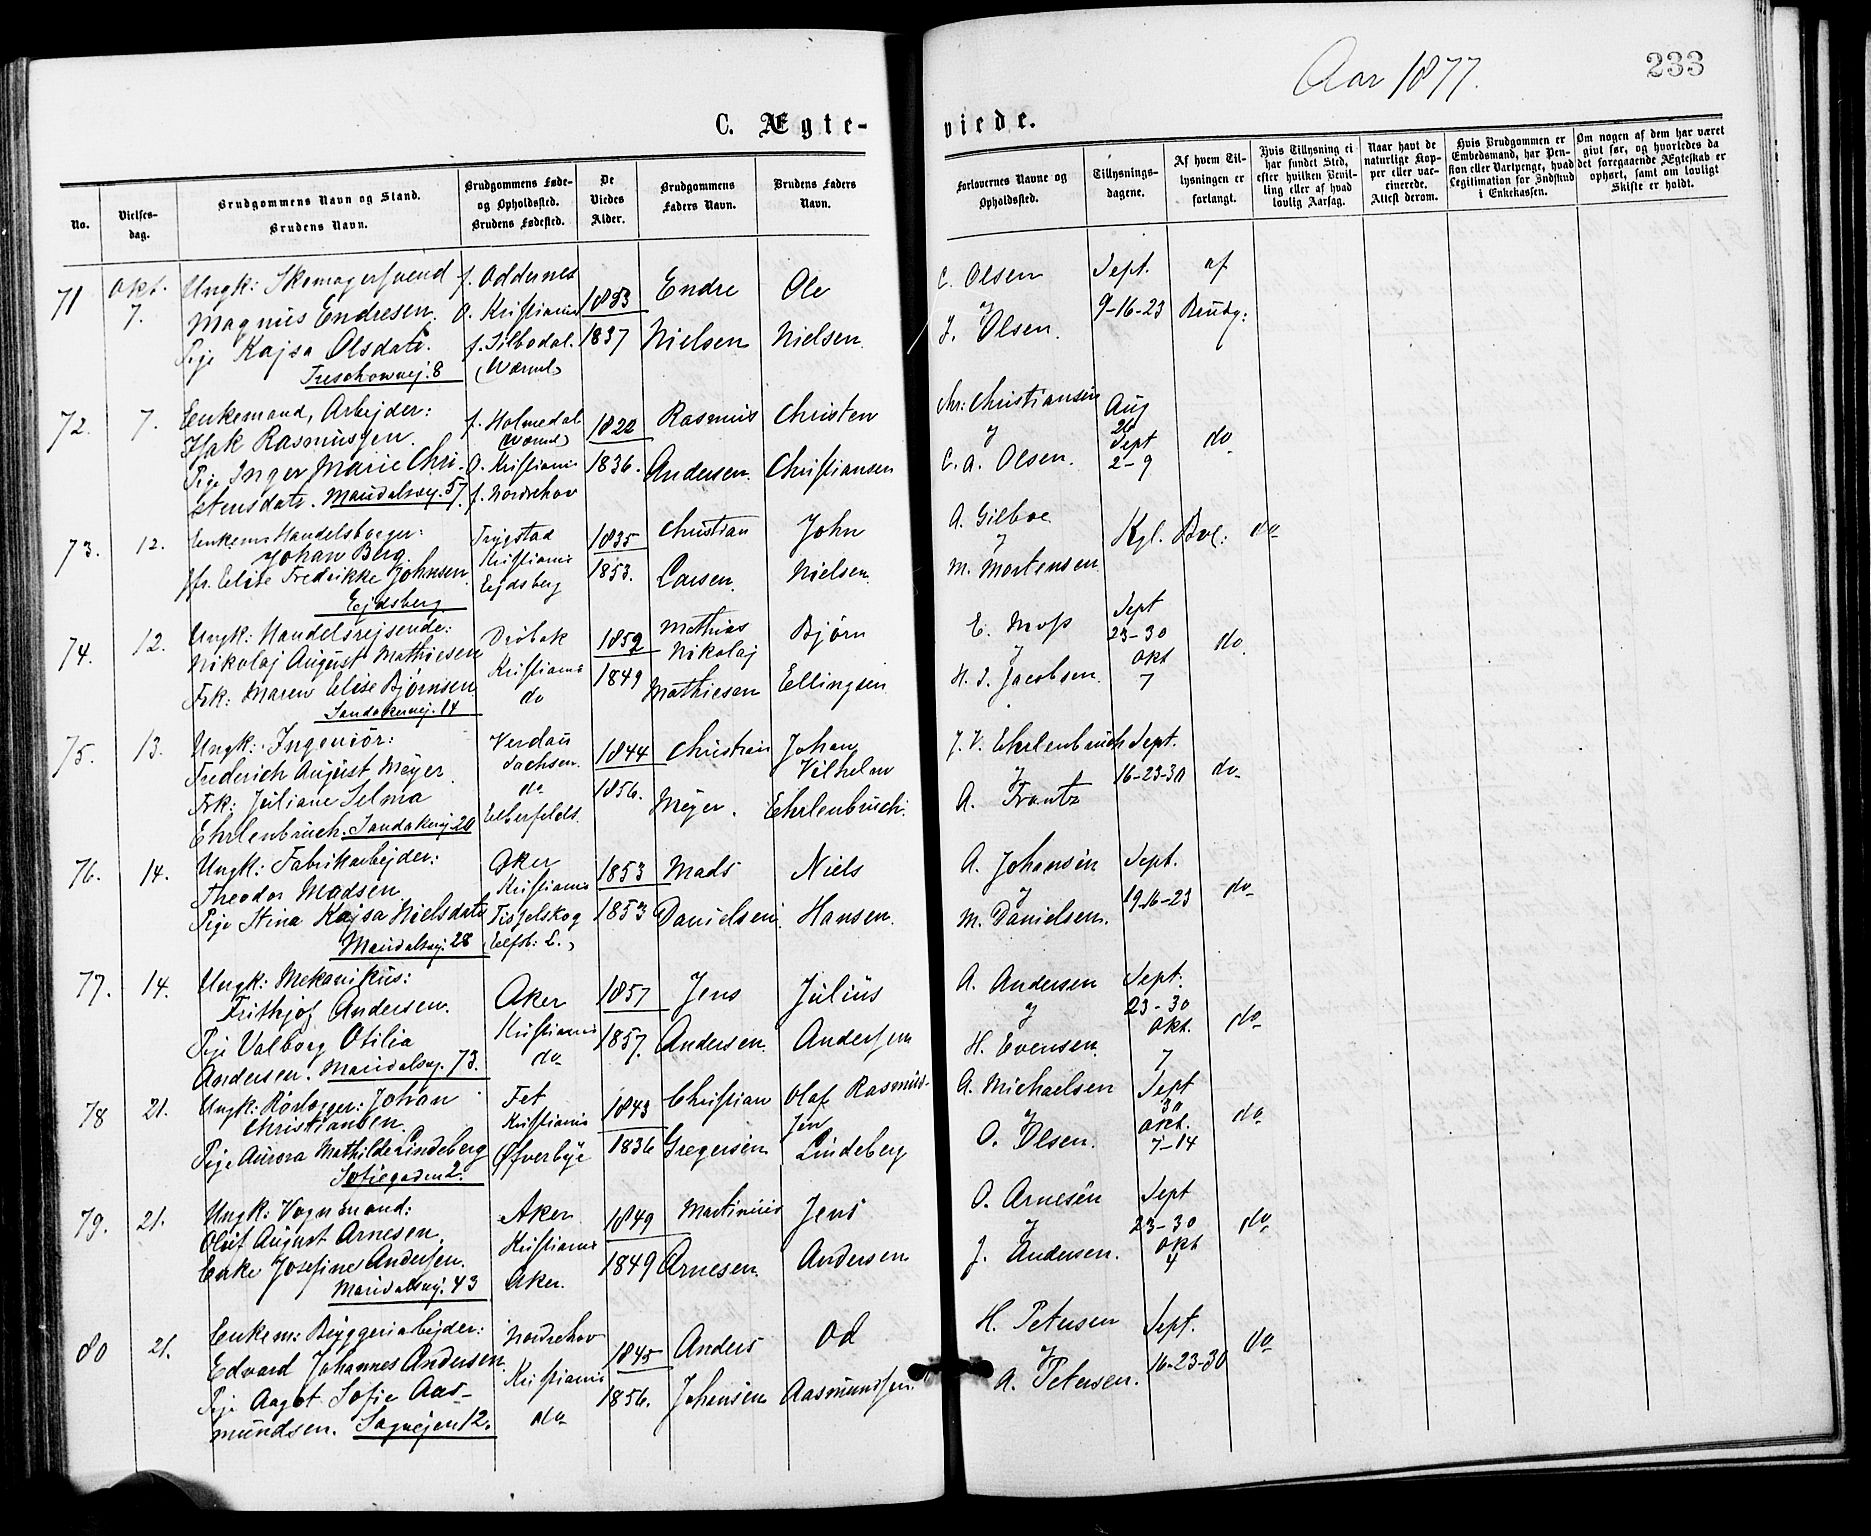 Aar 1877.
233
C. Ægte-
viede.
No.
Vielses-
dag.
Brudgommens Navn og Stand.
Brudens Navn.
Brudgommens Føde-
og Opholdssted.
Brudens Fødested.
De
Viedes
Alder.
Brudgommens
Faders Navn.
Brudens Faders
Navn.
Forlovernes Navne og
Opholdssted.
Tillysnings-
dagene.
Af hvem Til-
lysningen er
forlangt.
Hvis Tillysning ei
har fundet Sted,
efter hvilken Bevil-
ling eller af hvad
lovlig Aarsag.
Naar havt de
naturlige Kop-
per eller vac-
cinerede.
Attest derom.
Hvis Brudgommen er
Embedsmand, har Pen-
sion eller Vartpenge, hvad
Legitimation for Indskud
i Enkekassen.
Om nogen af dem har været
givt før, og hvorledes da
det foregaaende Ægteskab er
ophørt, samt om lovligt
Skifte er holdt.
71
Okt.
7.
Ungk: Skomagersvend
Magnus Endresen.
Pige Kajsa Olsdatr.
Treschowvej. 8
f. Oddernes
O. Kristiania
f. Silbodal.
(Værml)
1853
1837
Endre
Nielsen
Ole
Nielsen
C. Olsen
J. Olsen.
Sept.
9-16-23
af
Brudg:
72.
7.
Enkemand, Arbejder:
Isak Rasmussen.
Pige Inger Marie Chri-
stensdatr. Maridalsvej. 57.
f. Holmedal
(Værml)
O. Kristiania
f. Norderhov
1822
1836.
Rasmus
Andersen.
Christen
Christiansen
Chr: Christiansen
C. A. Olsen.
Aug
26
Sept
2-9
do
73.
12.
Enkem: Handelsborger:
Johan Berg.
Jfr. Elise Fredrikke Johnsen
Ejdsberg
Trygstad
Kristiania
Ejdsberg
1835
1853.
Christian
Larsen.
John
Nielsen.
A. Gilboe
M. Mortensen.
Kgl. Bvl:
do
74.
12.
Ungk: Handelsrejsende:
Nikolaj August Mathiesen
Frk: Maren Elise Bjørnsen
Sandakervej. 14
Drøbak
Kristiania
do
1852
1849
Mathias
Nikolaj
Mathiesen
Bjørn
Ellingsen
E. Moss
H. J. Jacobsen.
Sept
23-30
Okt
7
do
75.
13.
Ungk: Ingeniør:
Frederich August Meyer
Frk: Juliane Selma
Ehrlenbruch. Sandakervej 20
Verdau
Sachsen.
do
Elberfelds.
1844
1856.
Christian
Meyer.
Johan
Vilhelm
Ehrlenbruch.
J. V. Ehrlenbruch
A. Frantz
Sept.
16-23-30
do
76.
14.
Ungk: Fabrikarbejder:
Theodor Madsen.
Pige Stina Kajsa Nielsdatr
Maridalsvej. 28
Aker
Kristiania
Tisselskog
(Elfsb: L.)
1853
1853
Mads
Danielsen
Niels
Hansen.
A. Johansen
M. Danielsen.
Sept.
9-16-23
do
77.
14.
Ungk: Mekanikus:
Frithjof Andersen.
Pige Valborg Otilia
Andersen. Maridalsvej. 73.
Aker
Kristiania
do
1857
1857.
Jens
Andersen.
Julius
Andersen
A. Andersen
H. Evensen.
Sept.
23-30
Okt.
7
do
78
21.
Ungk: Rørlægger: Johan
Christiansen.
Pige Aurora Mathilde Lindeberg
Sofiegaden 2.
Fet
Kristiania
Øfverbye
1843
1836
Christian
Gregersen
Olaf Rasmus-
sen
Lindeberg
A. Michaelsen
O. Olsen.
Sept
30
Okt.
7-14
do
79.
21.
Ungk: Vognmand:
Oluf August Arnesen.
Enke Josefine Andersen.
Maridalsvej. 43
Aker
Kristiania
Aker.
1849
1849
Martinius
Arnesen
Jens
Andersen
O. Arnesen
J. Andersen.
Sept
23-30
Okt
4
do
80
21.
Enkem: Bryggeriarbejder:
Edvard Johannes Andersen
Pige Aagot Sofie Aas-
mundsen. Sagvejen 12.
Norderhov
Kristiania
do
1845
1856.
Anders
Johansen
Od
Aasmundsen.
H. Petersen
A. Petersen.
Sept.
16-23-30
do